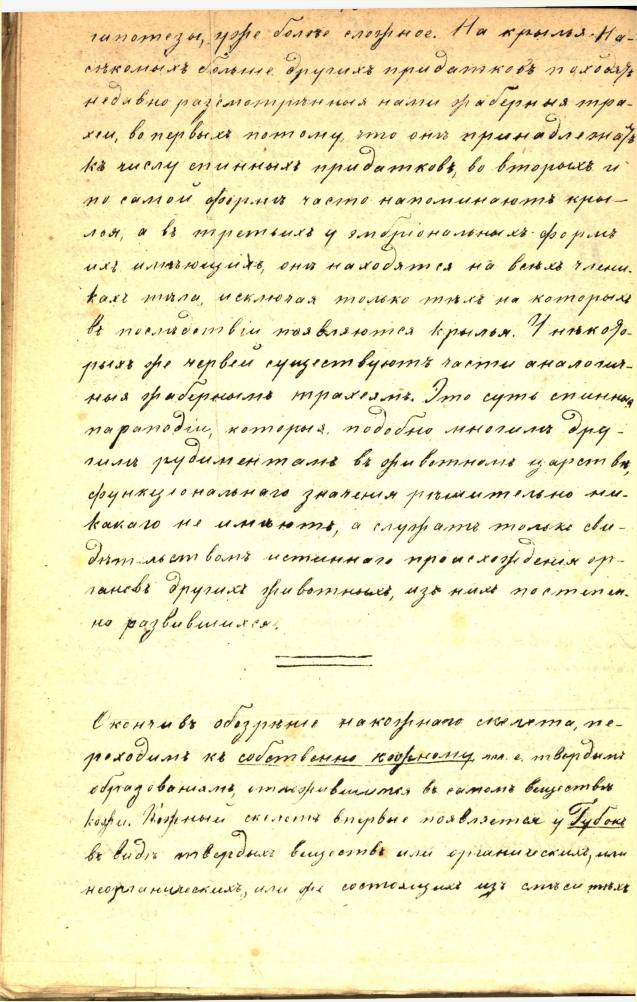 гипотезы, уже болѣе сложное. На крылья На-
сѣкомыхъ больше другихъ придатковъ походятъ
недавно разсмотрѣнныя нами жаберныя тра-
хеи, во первыхъ потому, что онѣ принадлежатъ
къ числу спинныхъ придатковъ, во вторыхъ и
по самой формѣ часто напоминаютъ кры-
лья, а въ третьихъ у эмбріональныхъ формъ
ихъ имѣющихъ, онѣ находятся на всѣхъ члени-
кахъ тѣла, исключая только тѣхъ на которыхъ
въ послѣдствіи появляются крылья. У нѣкото-
рыхъ же червей существуютъ части аналогич-
ныя жабернымъ трахеямъ. Это суть спинныя
параподіи, которыя, подобно многимъ дру-
гимъ рудиментамъ въ животномъ царствѣ,
функціональнаго значенія рѣшительно ни-
какаго не имѣютъ, а служатъ только сви-
дѣтельствомъ истиннаго происхожденія ор-
гановъ другихъ животныхъ, изъ нихъ постепен-
но развившихся.
Окончивъ обозрѣніе накожнаго скелета, пе-
реходимъ къ собственно кожному, т. е. твердымъ
образованіямъ, отложившимся въ самомъ веществѣ
кожи. Кожный скелетъ впервые появляется у Губокъ
въ видѣ твердыхъ веществъ или органическихъ, или
неорганическихъ, или же состоящихъ изъ смѣси тѣхъ